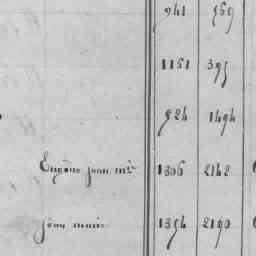 941 569
1151 395
924 1494
Eugène Jean Mie 1306 2142
Jean Marie 1354 2190